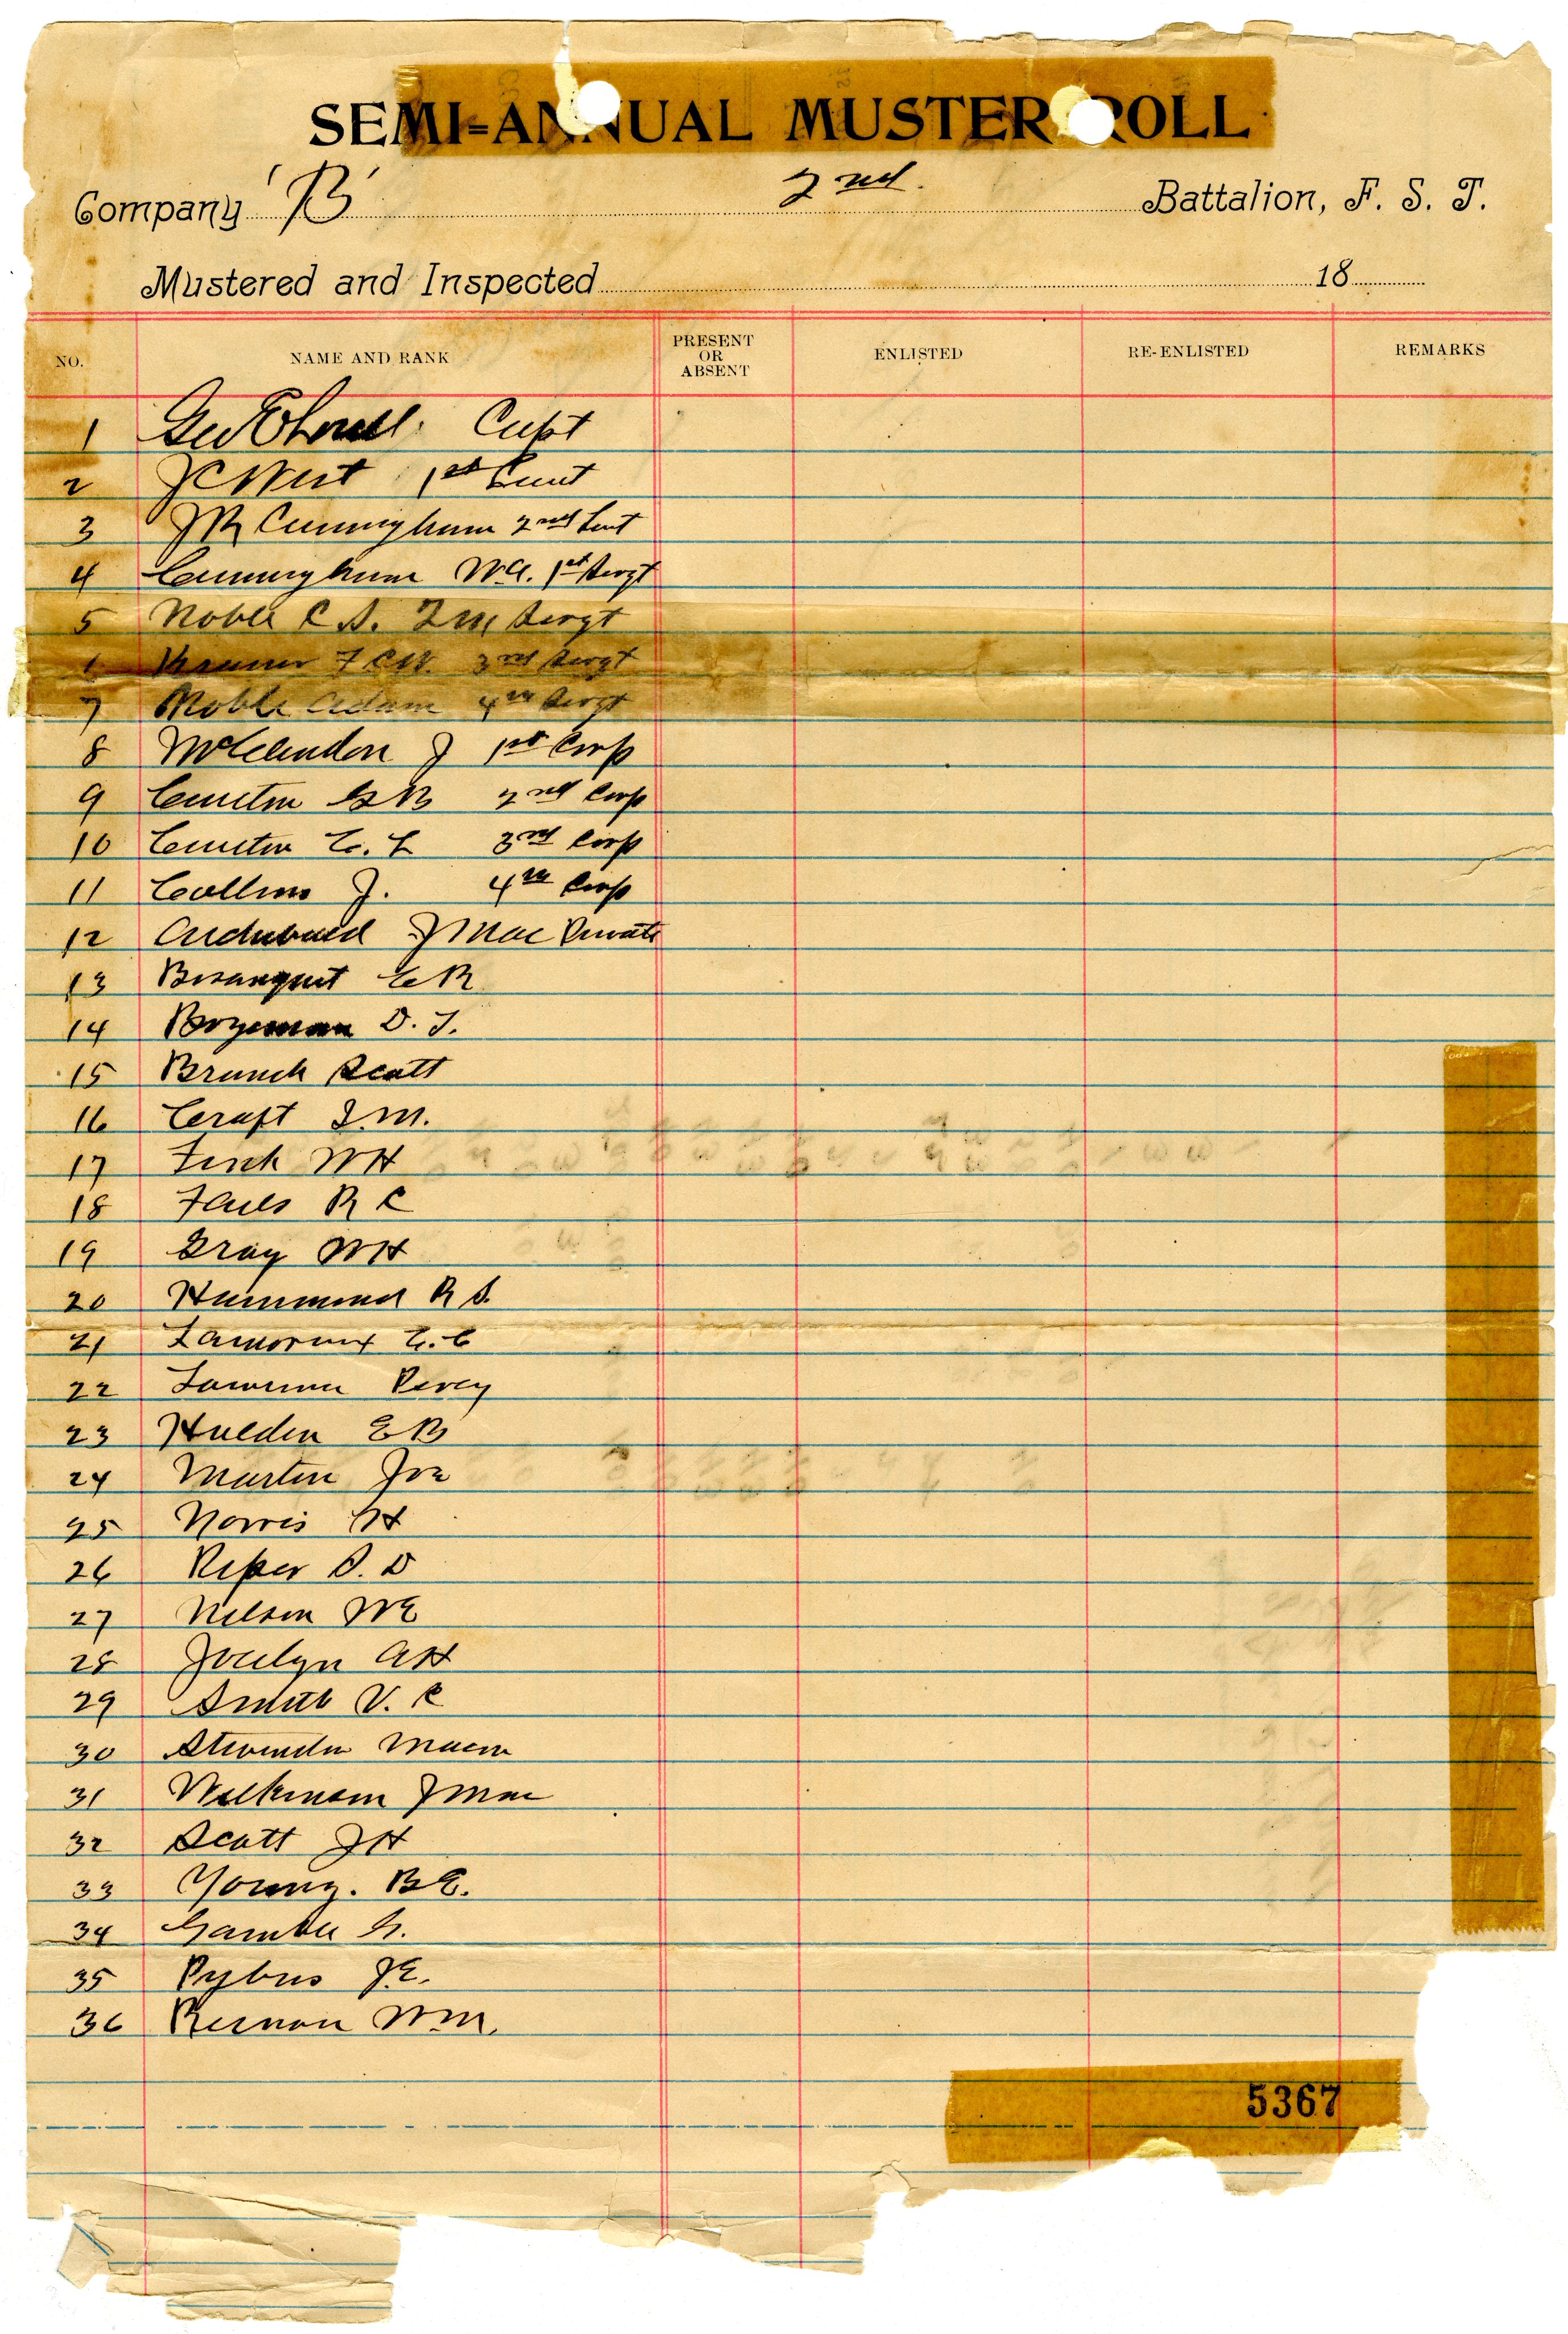 SEMI=ANNUAL MUSTER ROLL
Company 'B' 2nd. Battalion, F. S. T.
Mustered and Inspected 18
NO. NAME AND RANK PRESENT OR ABSENT ENLISTED RE-ENLISTED REMARKS
1 Capt
2 J C West 1st Lieut
3 J R Cunningham 2nd Lieut
4 Cunningham W.A. 1st Sergt
5 Noble C S. Q M Sergt
6 Kramer F C W. 3rd Sergt
7 Noble Adam 4th Sergt
8 McClendon J 1st Corp
9 Cureton G B 2nd Corp
10 Cureton E. L 3rd Corp
11 Collins J. 4th Corp
12 Archibald J Mac Private
13 Bosanquet C R
14 Bozeman D. T.
15 Branch Scott
16 Craft I. M.
17 Finch W H
18 Fails R C
19 Gray W H
20 Hammond R S.
21 Lamoraux C. C
22 Lawrence Percy
23 Hulden E B
24 Martin Joe
25 Norris H
26 Reper S. D
27 Nelson W E
28 Jocelyn A H
29 Smith V. C
30 Macon
31 Wilkinson J Mac
32 Scott J H
33 Young. B E.
34 Gamble G.
35 Pybus J. E.
36 W. M.
5367